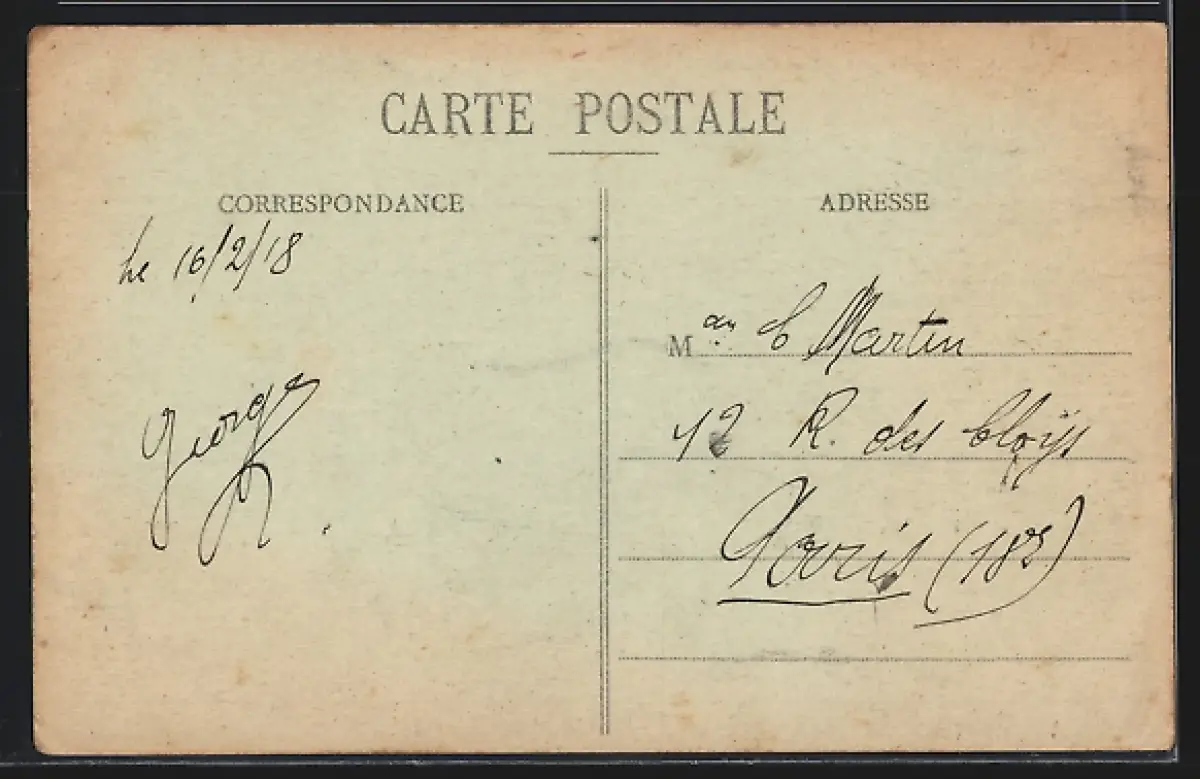 CARTE POSTALE
CORRESPONDANCE
ADRESSE
Le 16/2/18
Georges
M C Martin
42 R. des Cloÿs
Paris (18e)